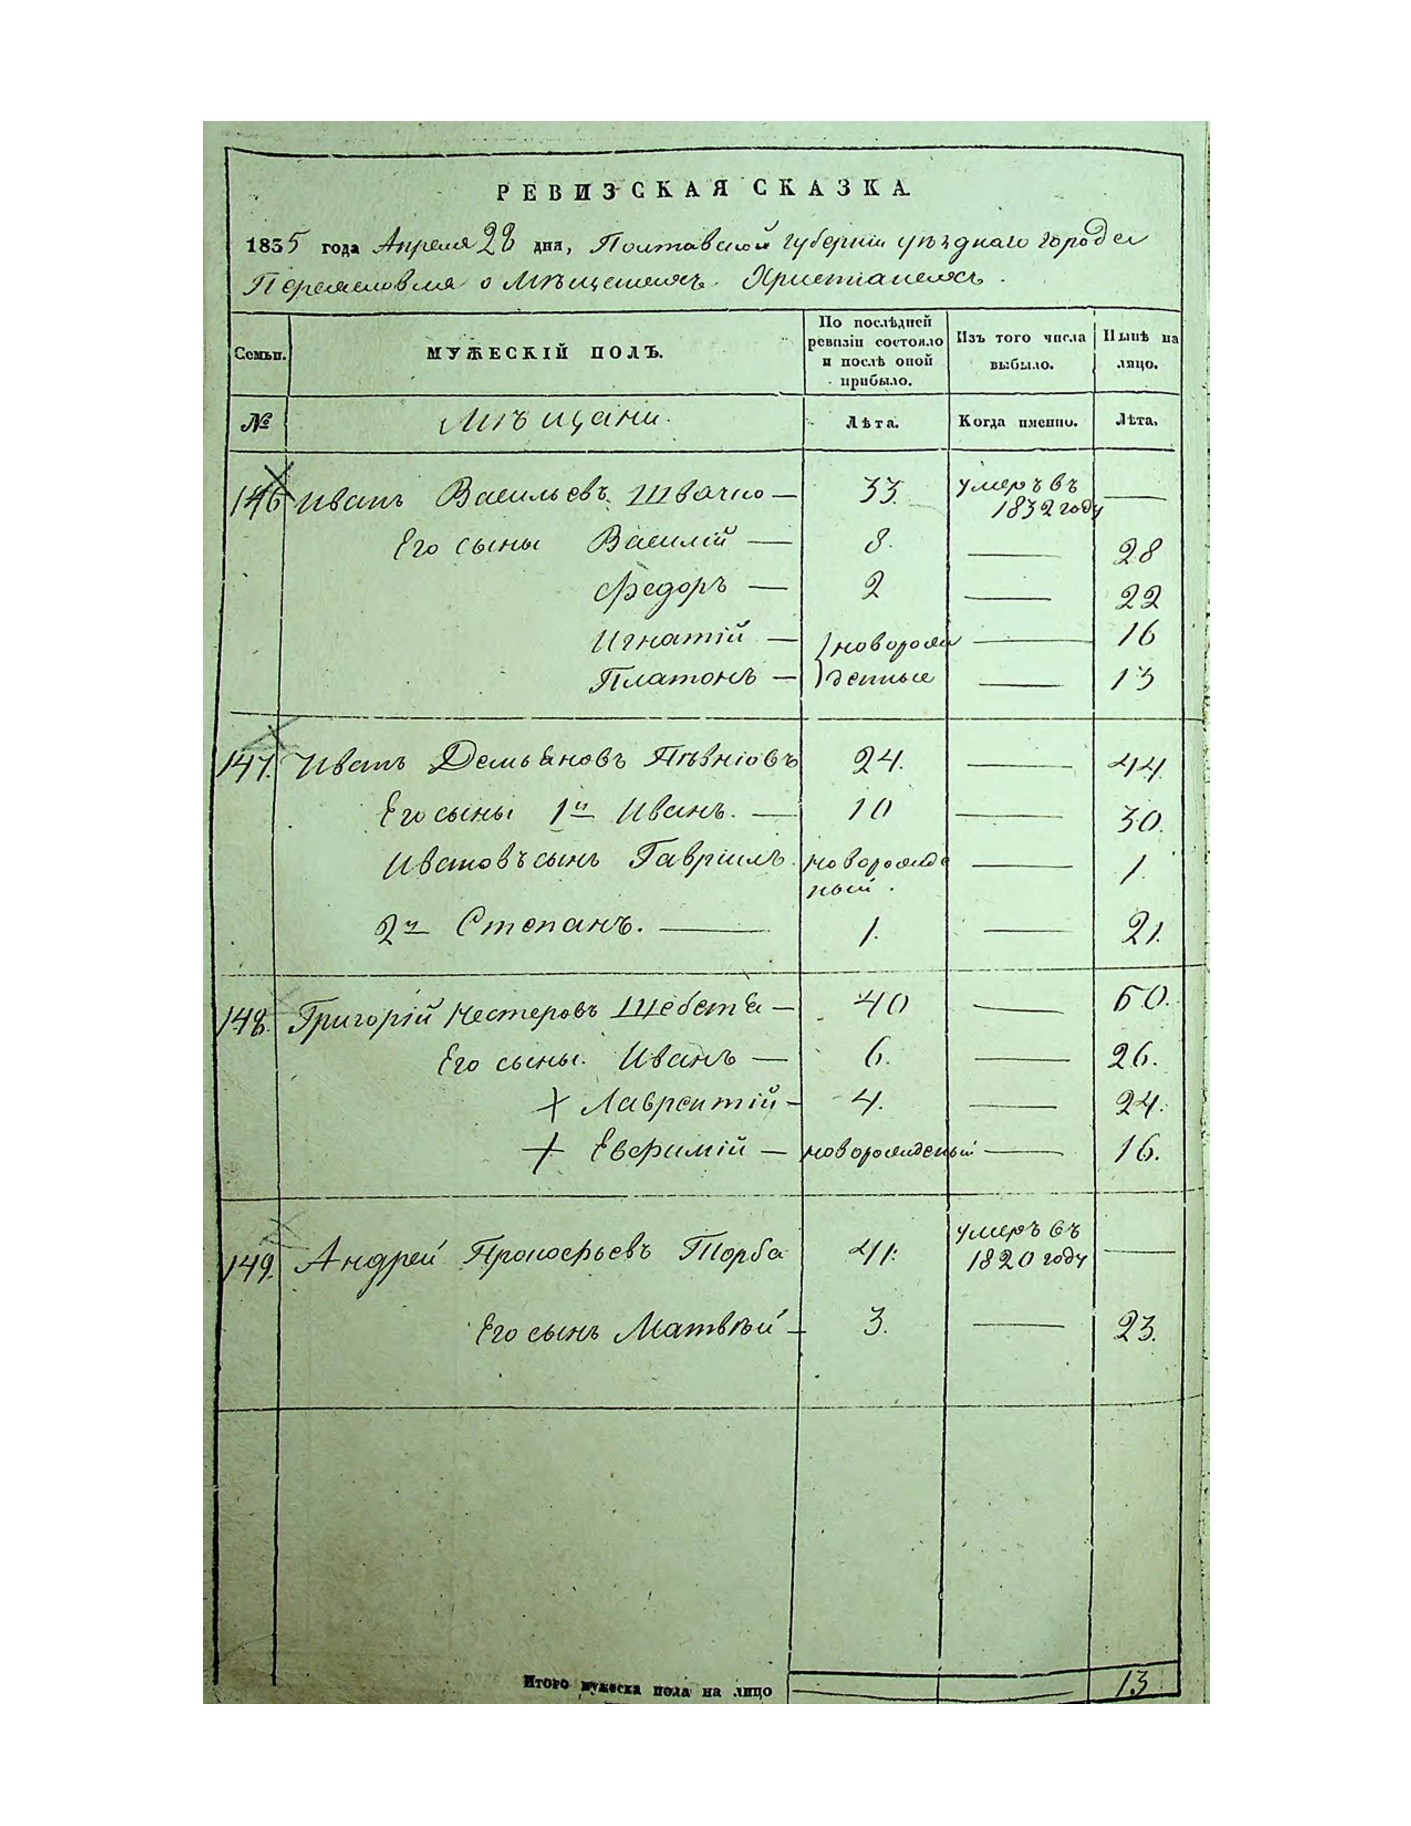 РЕВИЗСКАЯ СКАЗКА
1835 года Апреля 28 дня, Полтавской губернии уѣзднаго города
Переяславля о Мѣщанахъ Христіанахъ.
Семьи.
МУЖЕСКІЙ ПОЛЪ.
По послѣдней
ревизіи состояло
и послѣ оной
прибыло.
Изъ того числа
выбыло.
Нынѣ на
лицо.
№ Мѣщани. Лѣта. Когда именно. Лѣта.
146 Иванъ Васильевъ Швачко — 33. умеръ въ 1832 году —
Его сыны Василій — 8. — 28
Федоръ — 2 — 22
Игнатій — новорож — 16
Платонъ — денные — 13
147. Иванъ Демьяновъ 24. — 44.
Его сыны 1й Иванъ. — 10 — 30.
Ивановъ сынъ Гавріилъ. новорожде — 1.
ный.
2й Степанъ. — 1. — 21.
148. Григорій Нестеровъ — 40 — 60.
Его сыны. Иванъ — 6. — 26.
+ Лаврентій — 4. — 24.
+ Евфимій — новорожденый — 16.
149. Андрей Прокофьевъ Торба 41. умеръ въ 1820 году —
Его сынъ Матвѣй — 3. — 23.
Итого мужеска пола на лицо — 13